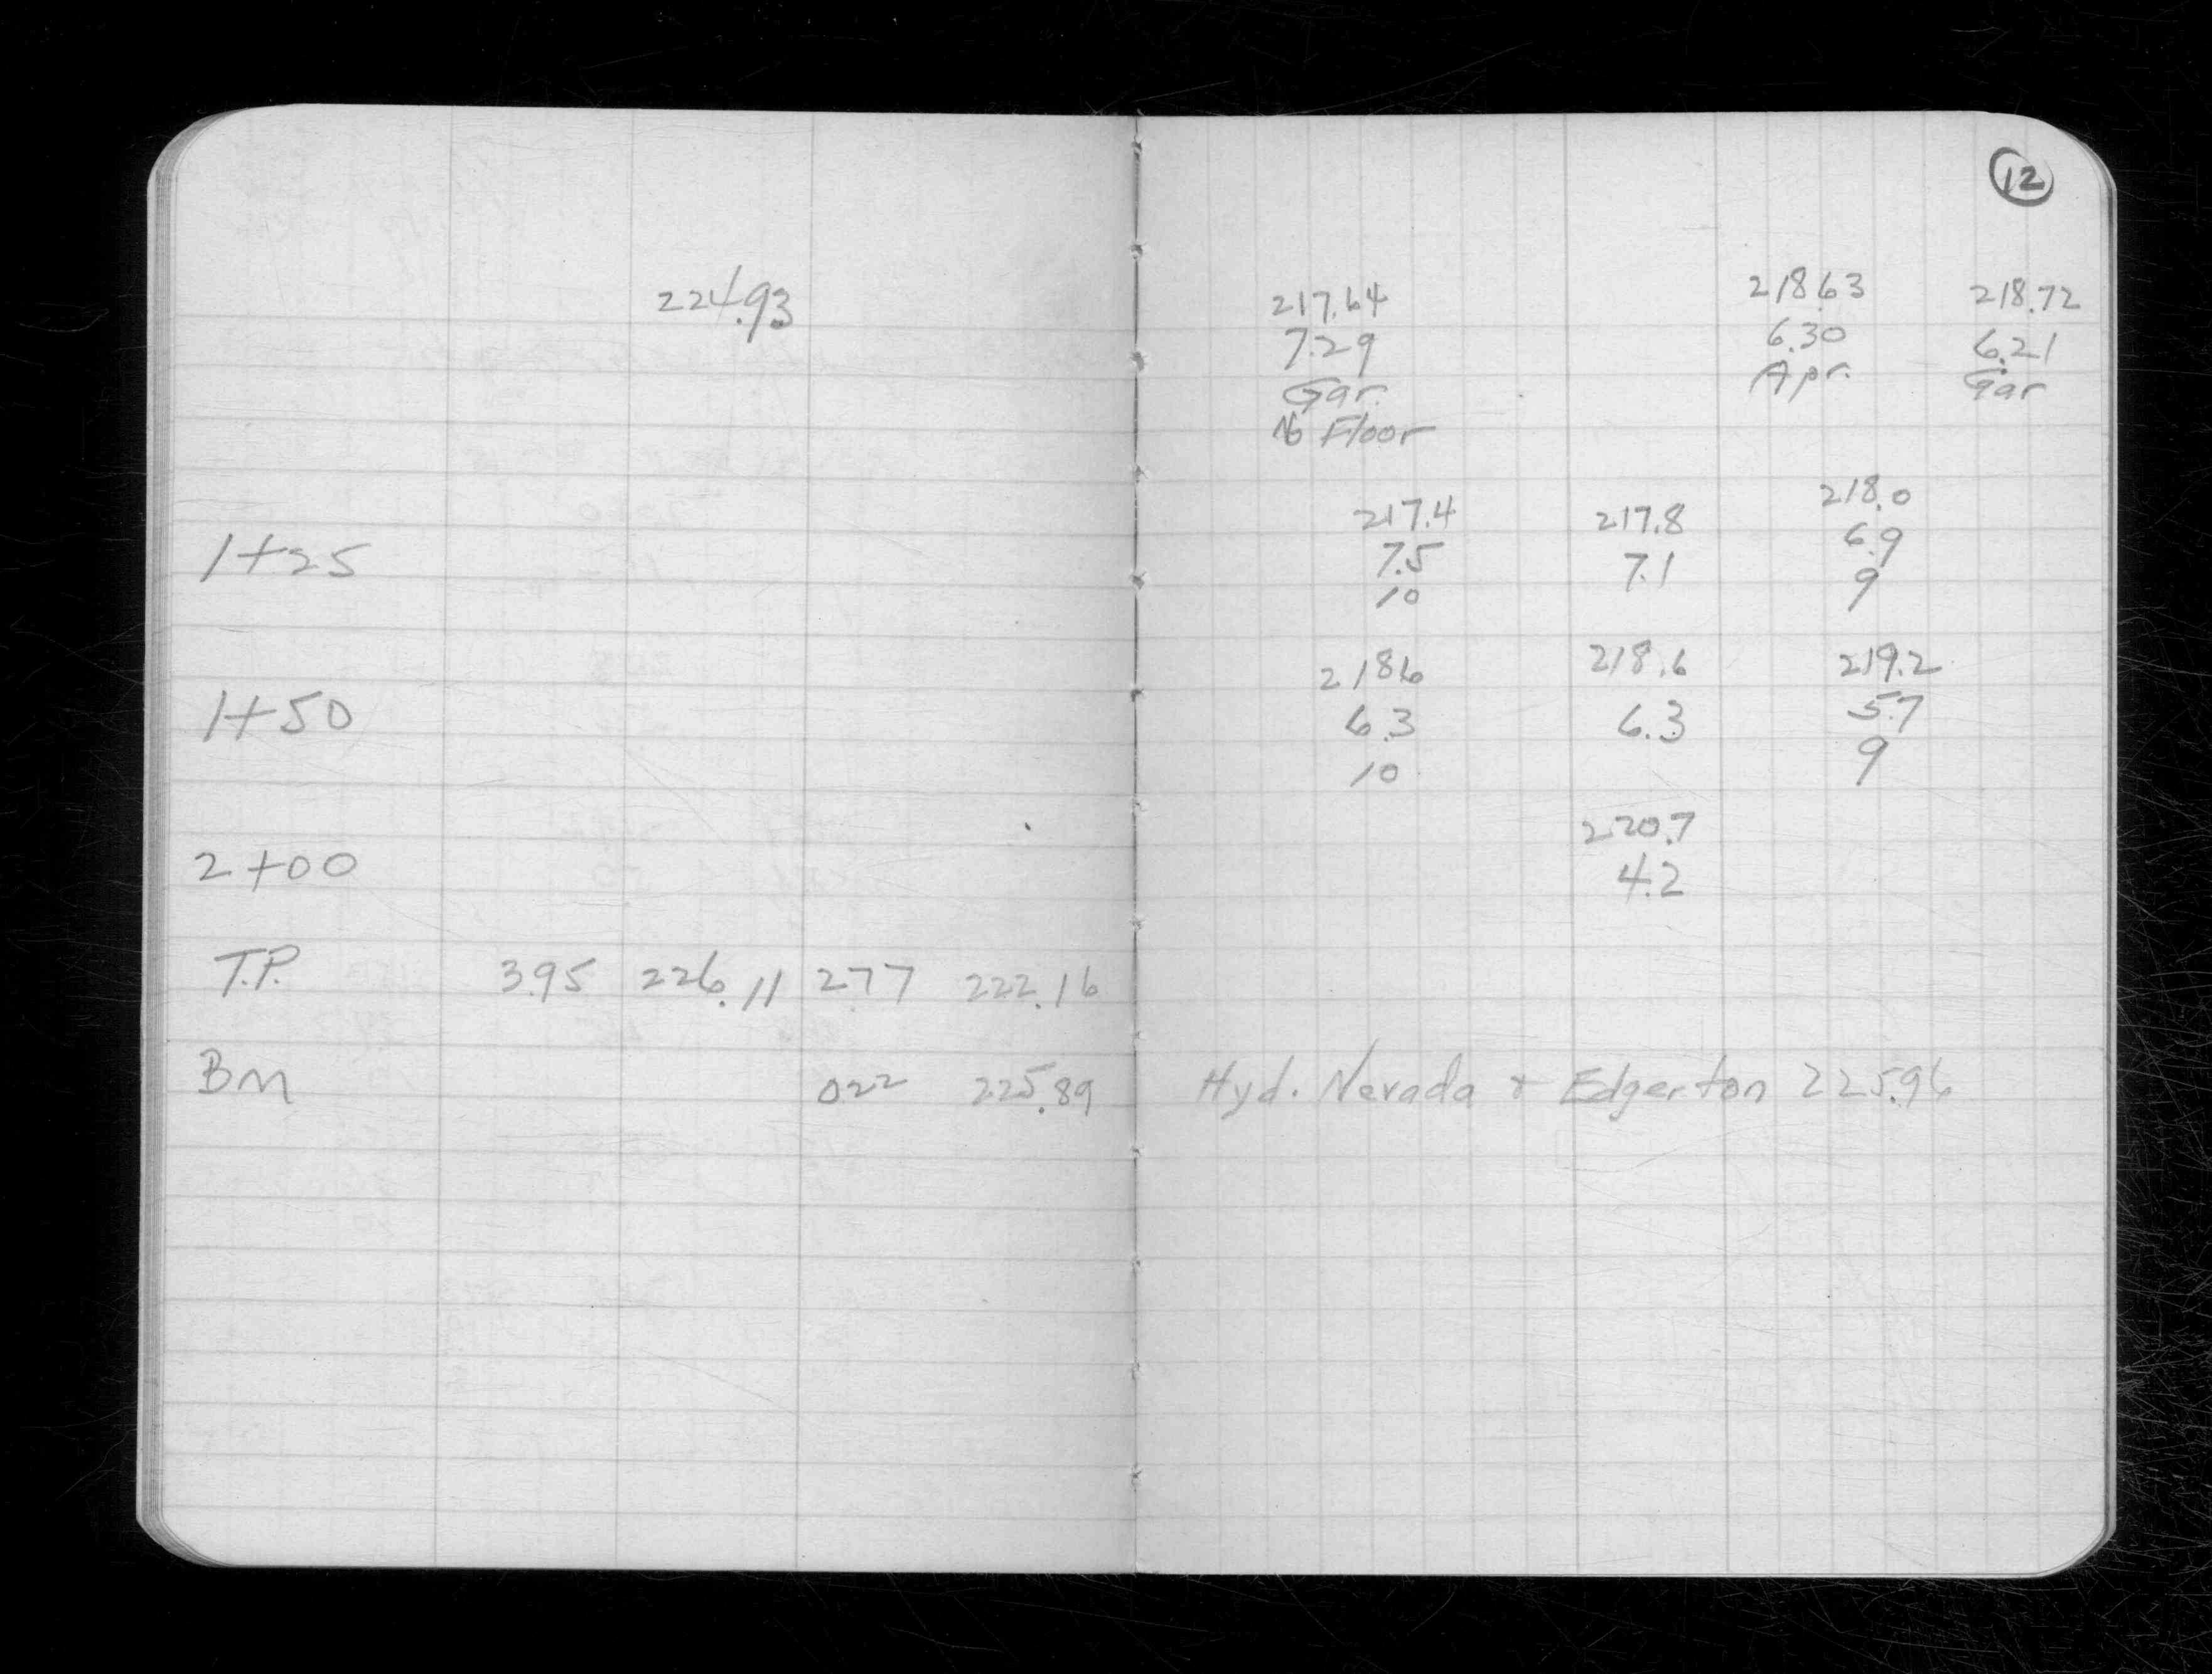 12
224.93
217.64 218.63 218.72
7.29 6.30 6.21
Gar. Apr. Gar
No Floor
217.4 217.8 218.0
1+25 7.5 7.1 6.9
10 9
218.6 218.6 219.2
1+50 6.3 6.3 5.7
10 9
220.7
2+00 4.2
T.P. 3.95 226.11 2.77 222.16
BM 0.22 225.89 Hyd. Nevada & Edgerton 225.96